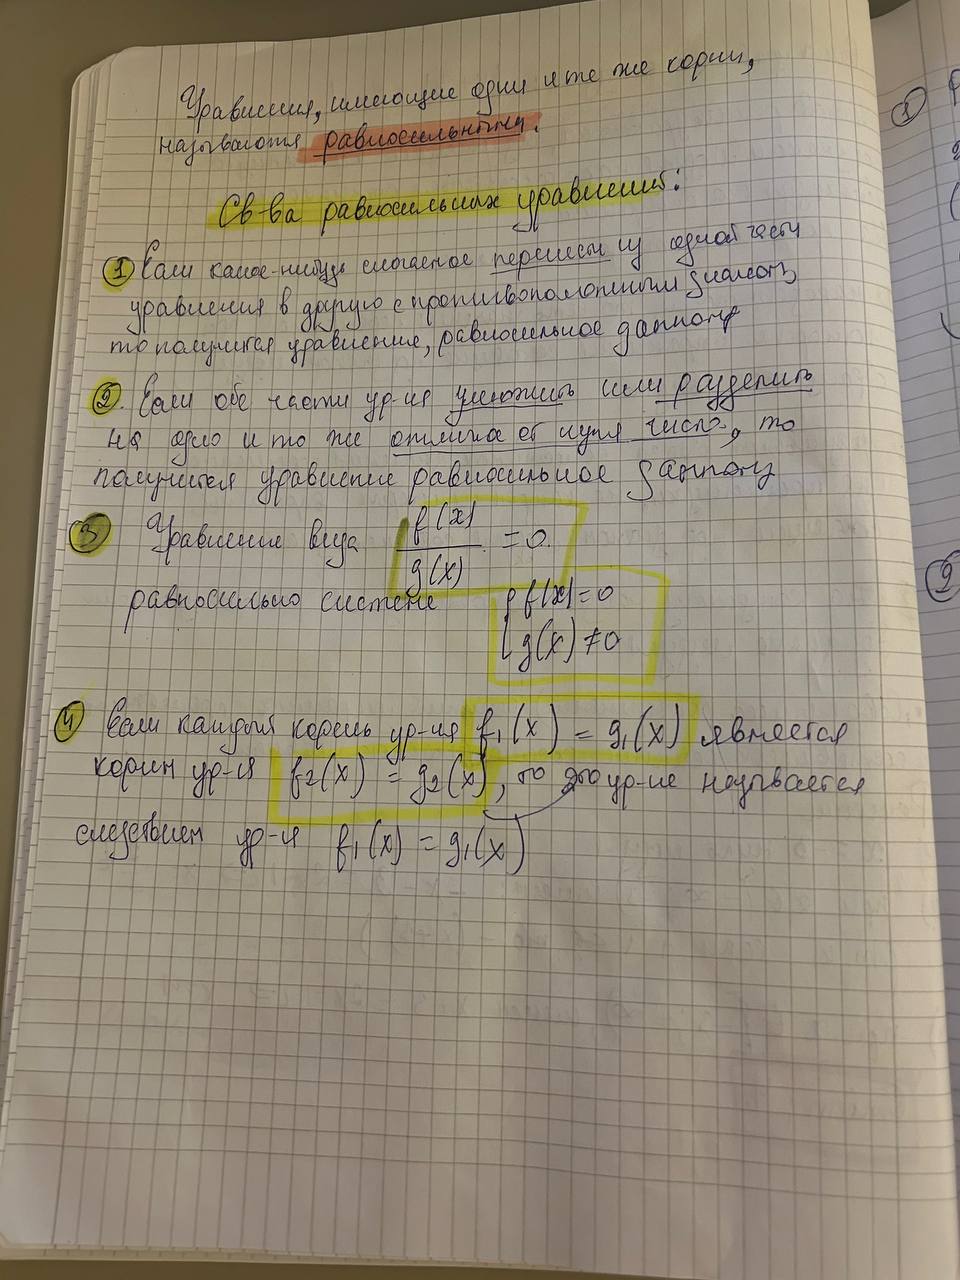 Уравнения, имеющие одни и те же корни,
называются равносильными.
Св-ва равносильных уравнений:
① Если какое-нибудь слагаемое перенести из одной части
уравнения в другую с противоположным знаком,
то получится уравнение, равносильное данному
②. Если обе части ур-ия умножить или разделить
на одно и то же отличное от нуля число, то
получится уравнение равносильное данному
③ Уравнение вида f(x)/g(x) = 0
равносильно системе { f(x)=0
g(x) ≠ 0
④ Если каждый корень ур-ия f₁(x) = g₁(x) является
корнем ур-ия f₂(x) = g₂(x), то это ур-ие называется
следствием ур-ия f₁(x) = g₁(x)
①
②